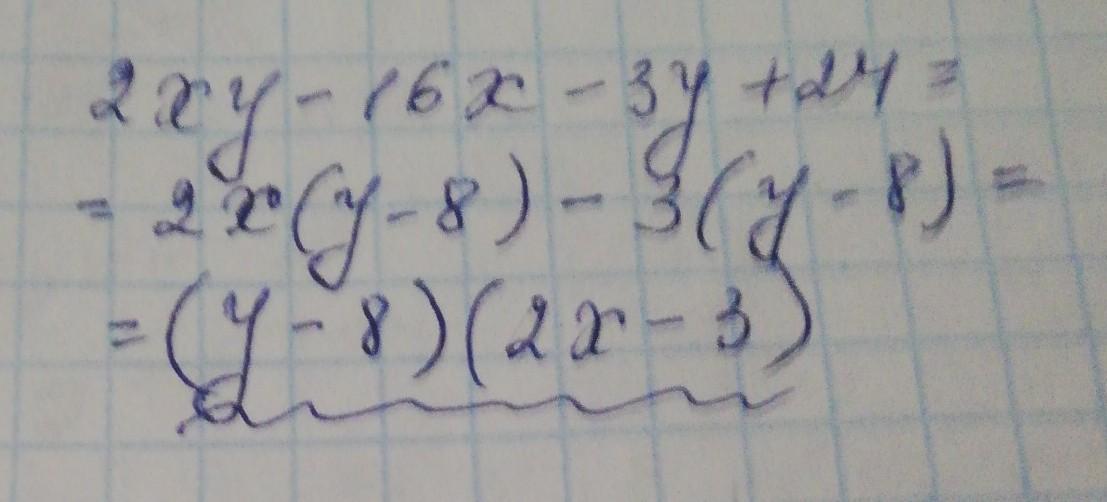 2xy - 16x - 3y + 24 =
= 2x(y - 8) - 3(y - 8) =
= (y - 8)(2x - 3)